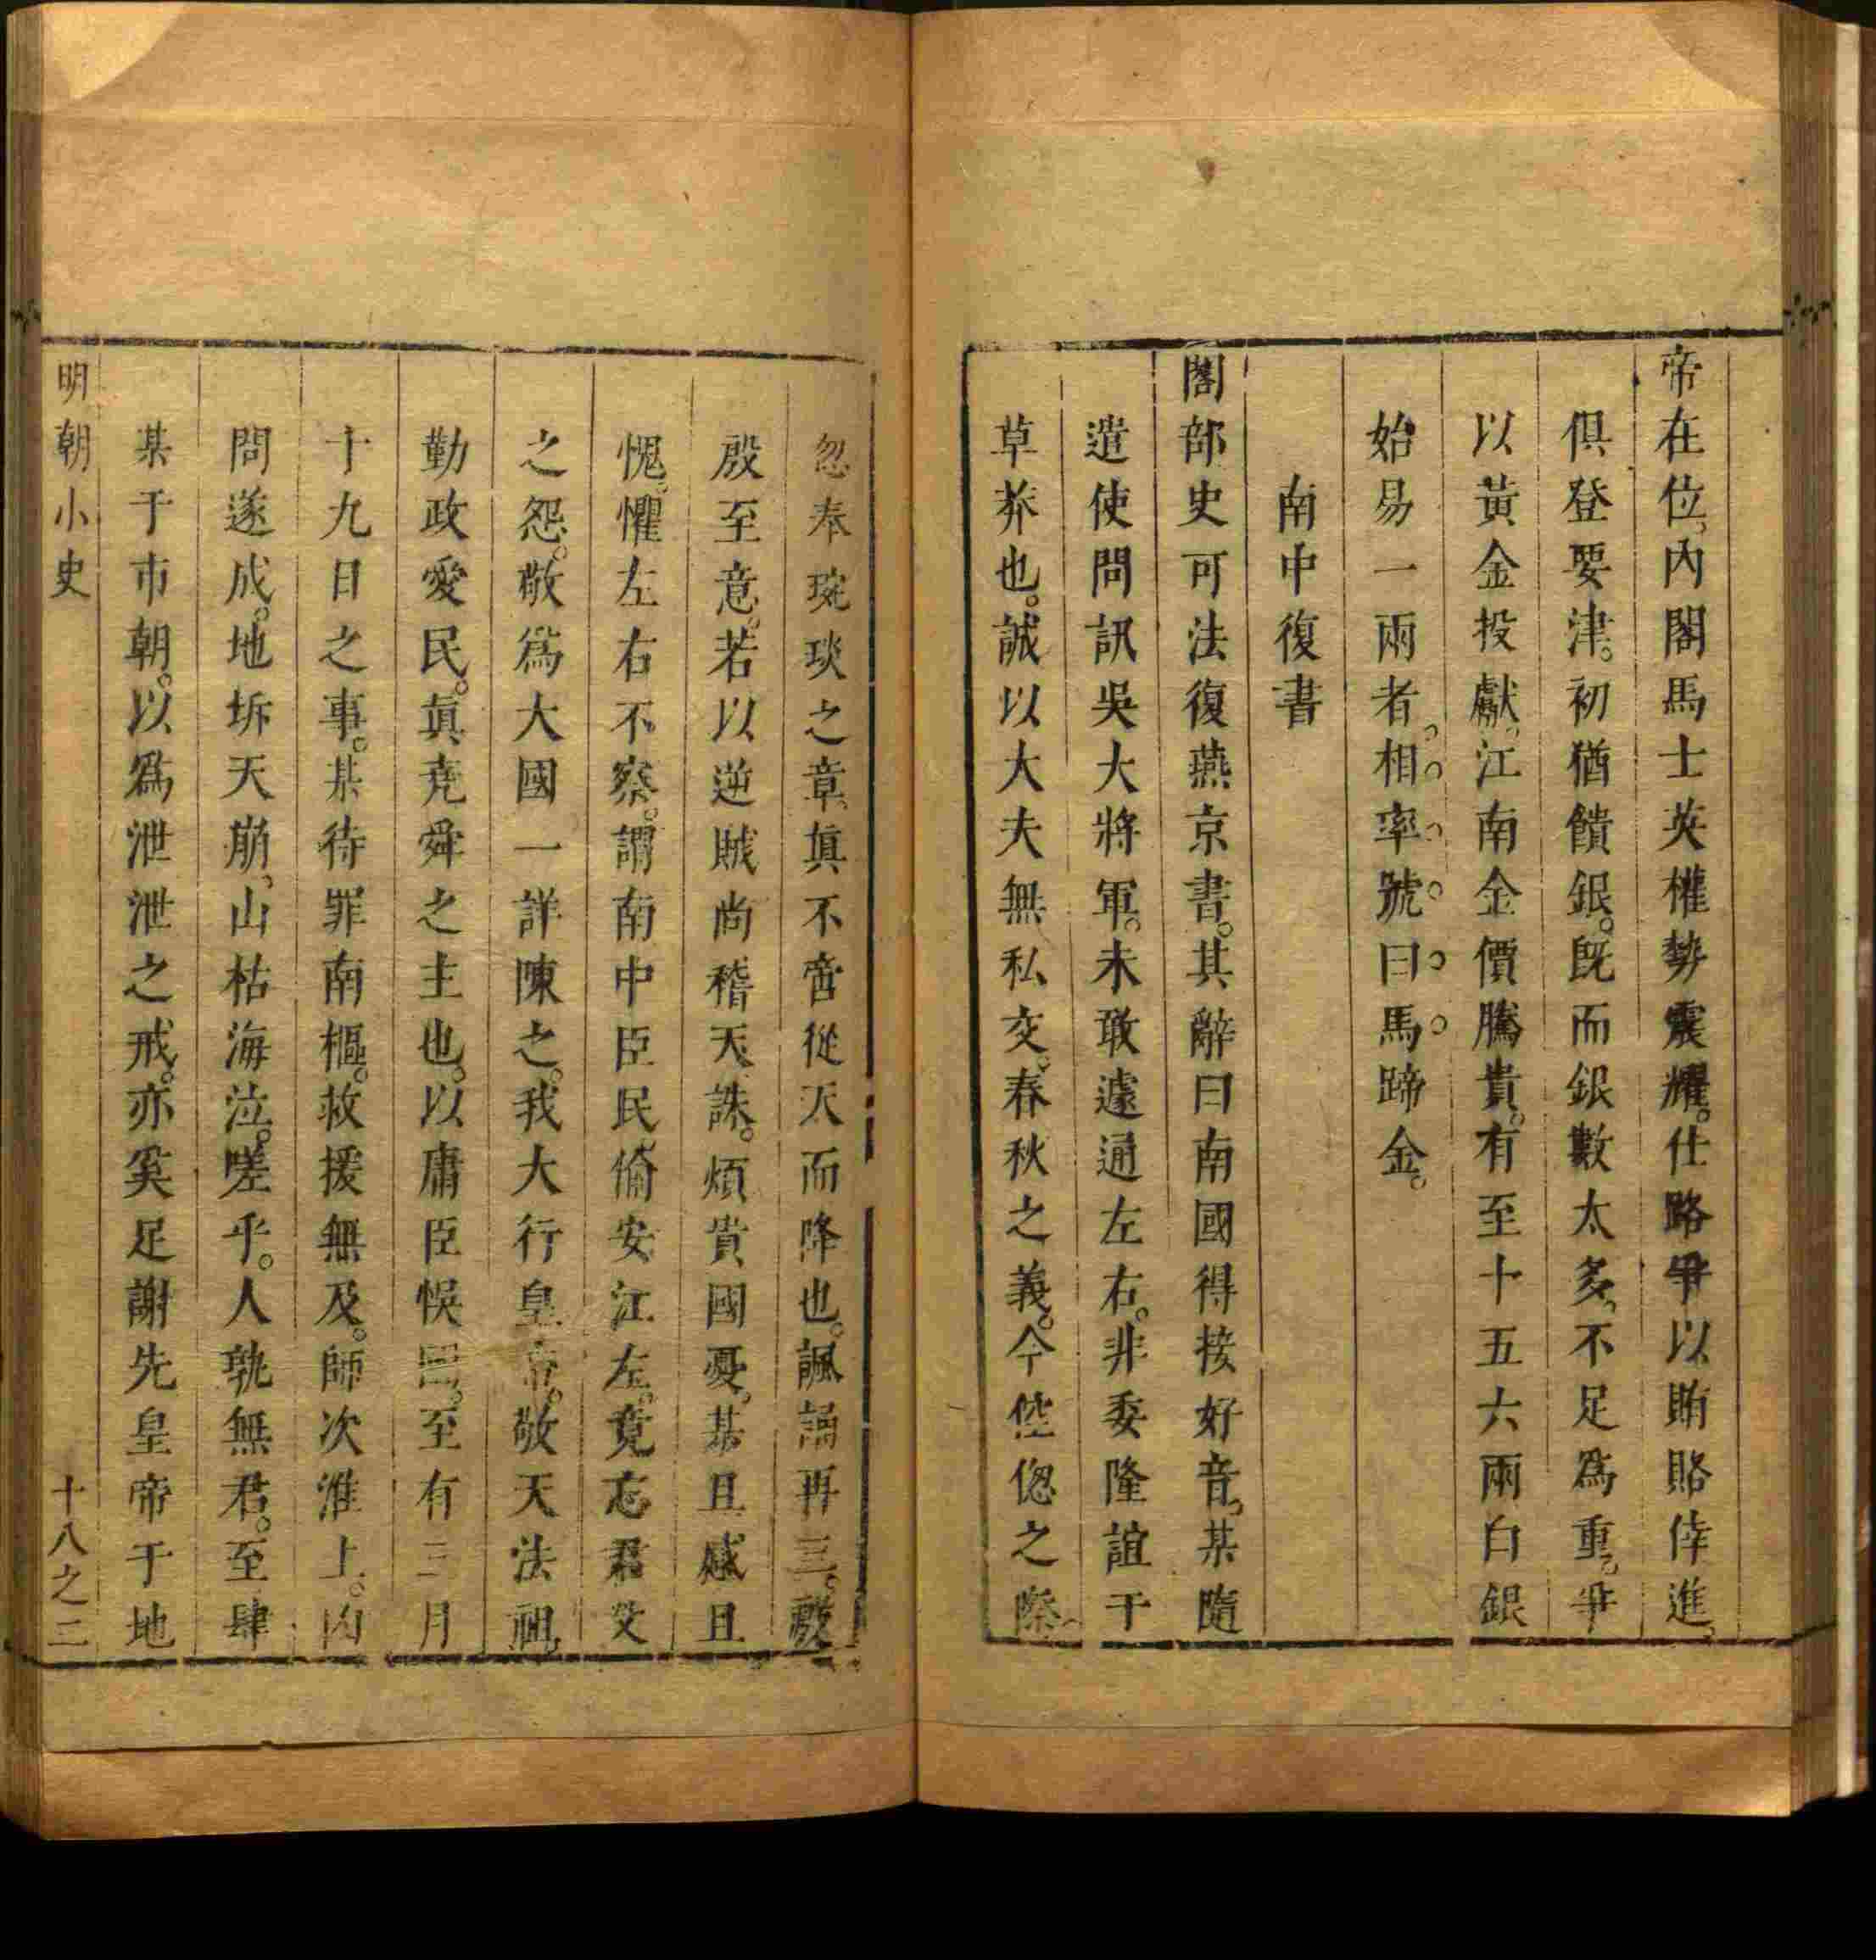 帝在位內閣馬士英權勢震耀。仕路爭以賄賂倖進。
俱登要津。初猶饋銀。旣而銀數太多。不足爲重。爭
以黃金投獻。江南金價騰貴。有至十五六兩白銀
始易一兩者。相率號曰馬蹄金。
南中復書
閣部史可法復燕京書。其辭曰南國得接好音。某隨
遣使問訊吳大將軍。未敢遽通左右。非委隆誼于
草莽也。誠以大夫無私交。春秋之義。今倥偬之際
忽奉琬琰之章。真不啻從天而降也。諷誦再三。殷
殷至意。若以逆賊尚稽天誅。煩貴國憂。某且感且
愧。懼左右不察。謂南中臣民偷安江左。竟忘君父
之怨。敬爲大國一詳陳之。我大行皇帝。敬天法祖
勤政愛民。真堯舜之主也。以庸臣悞國。至有三月
十九日之事。某待罪南樞。救援無及。師次淮上。凶
問遂成。地坼天崩。山枯海泣。嗟乎。人孰無君。至肆
某于市朝。以爲泄泄之戒。亦奚足謝先皇帝于地
明朝小史
十八之二